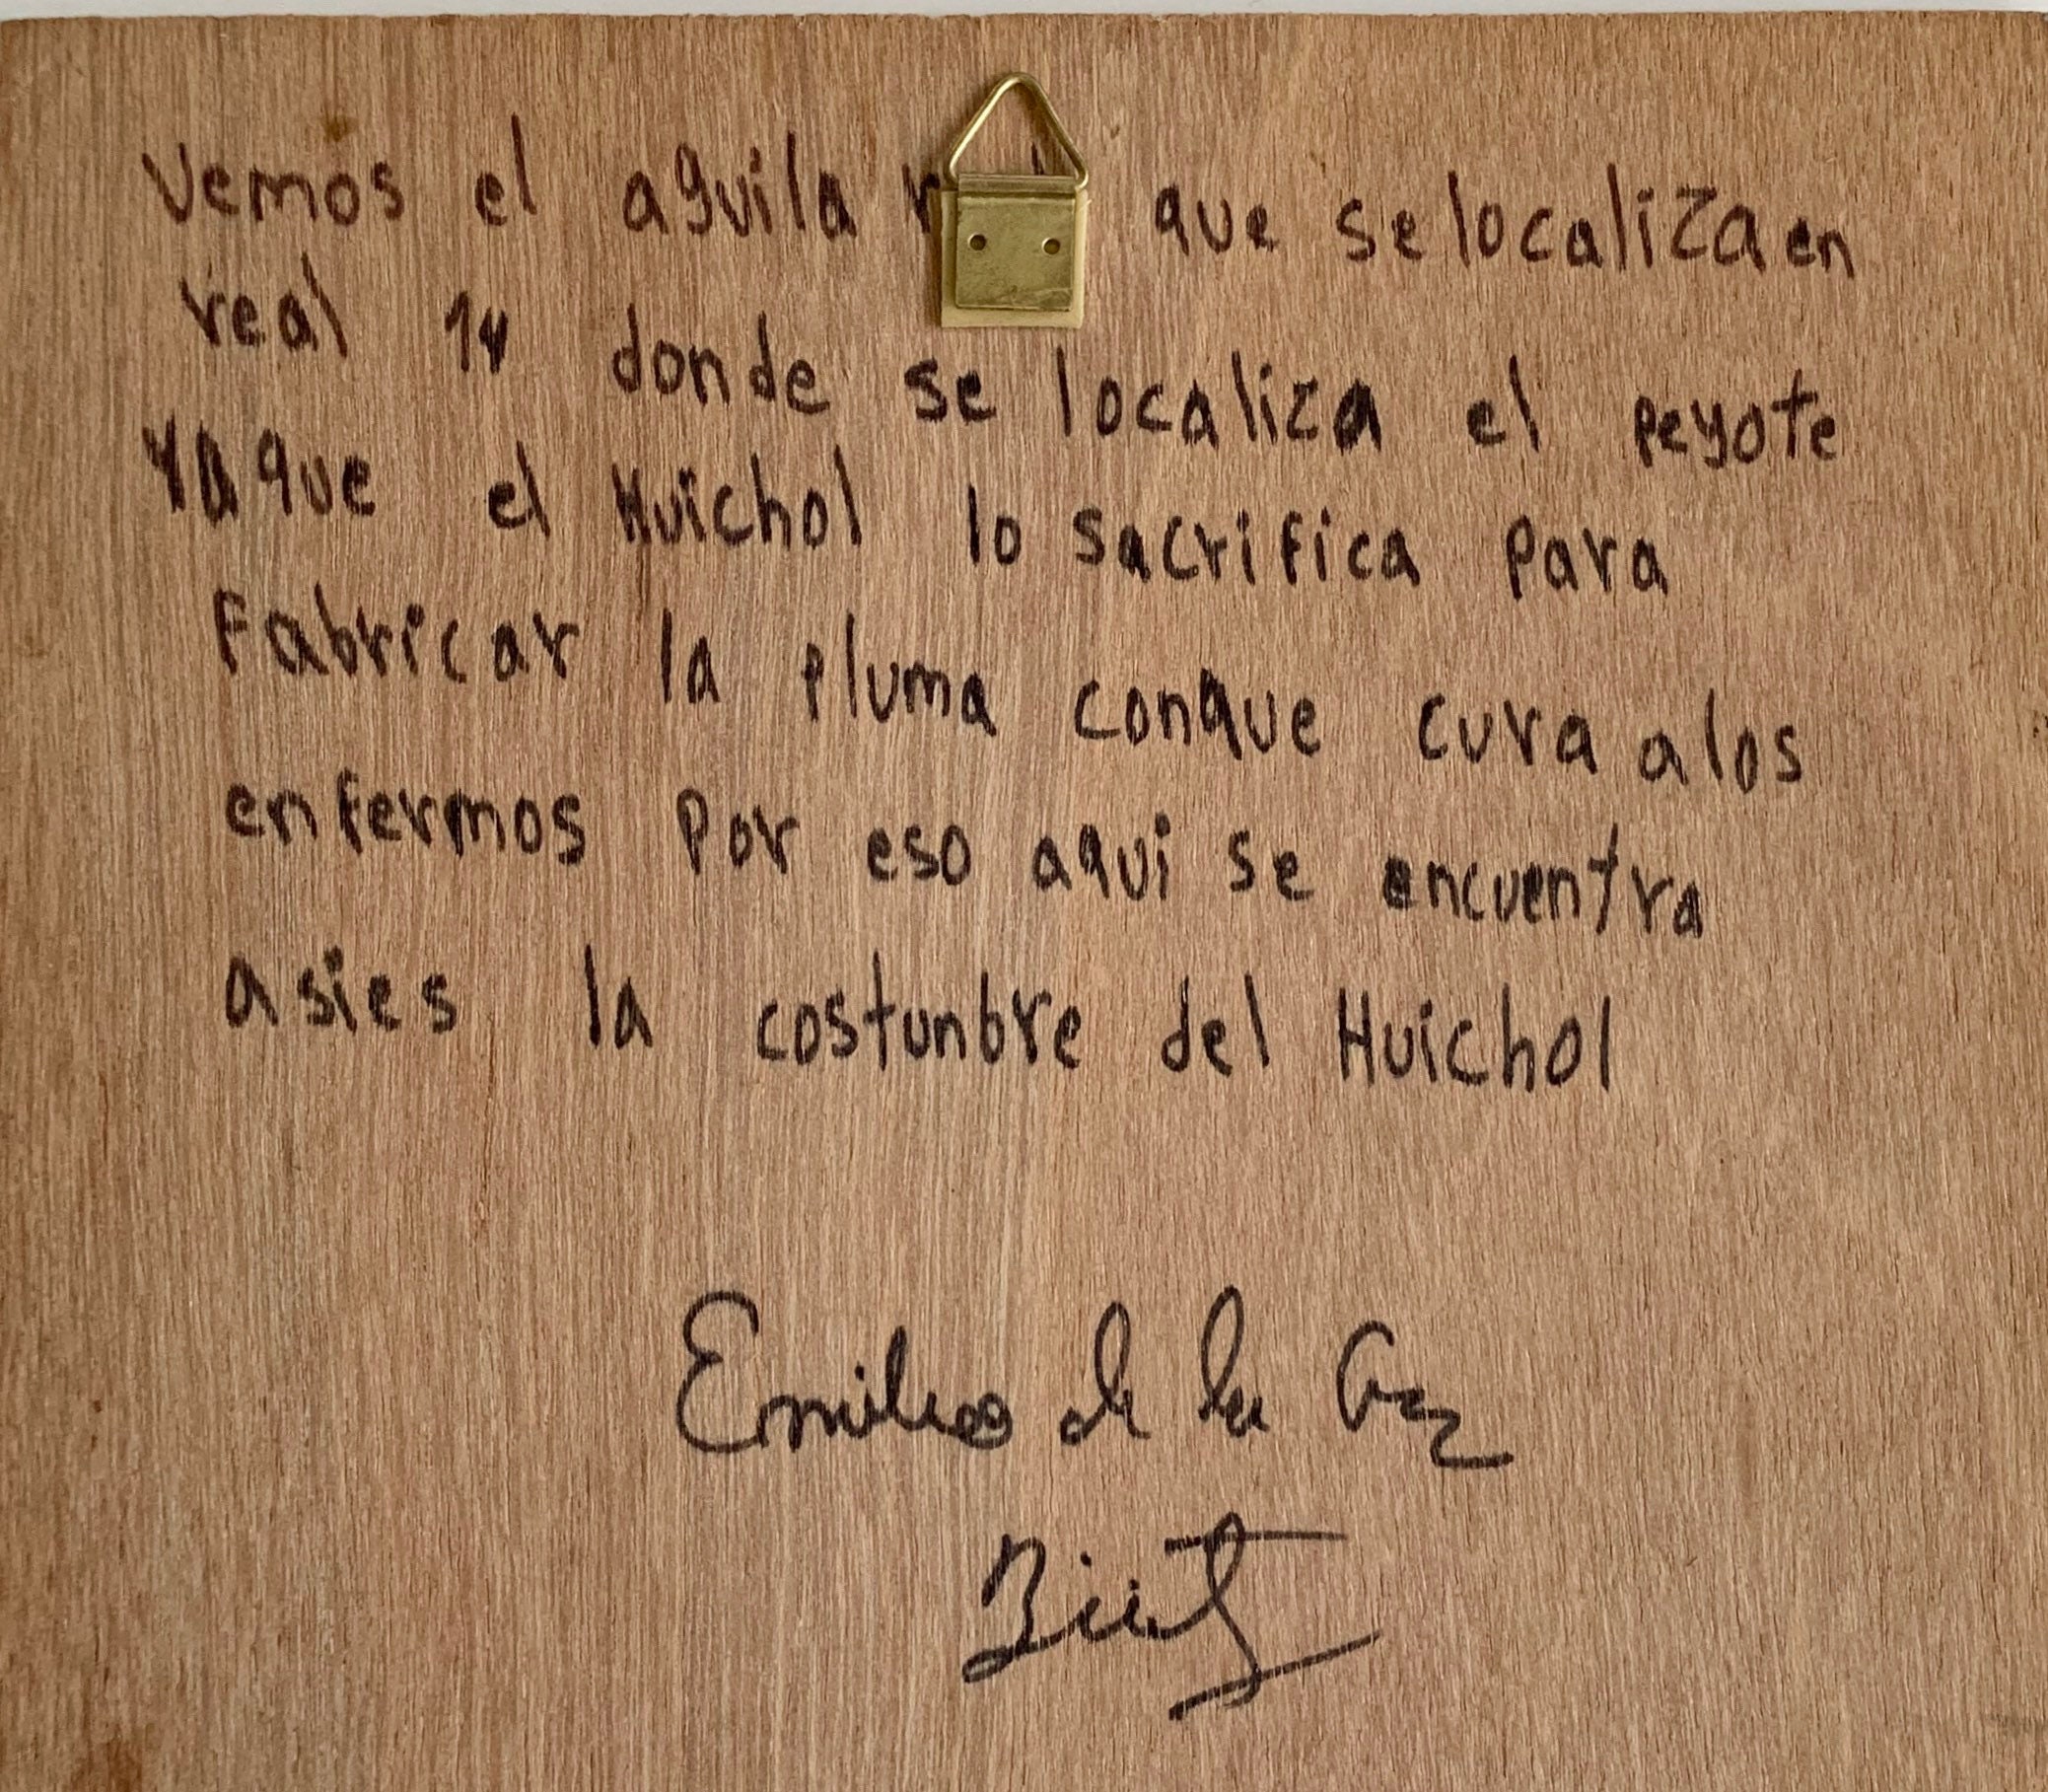 Vemos el aguila que selocaliza en
real 14 donde se localiza el peyote
Ya que el Huichol lo sacrifica Para
Fabricar la Pluma conque cura alos
enfermos Por eso aqui se encuentra
asies la costunbre del Huichol
Emilio de la Cruz